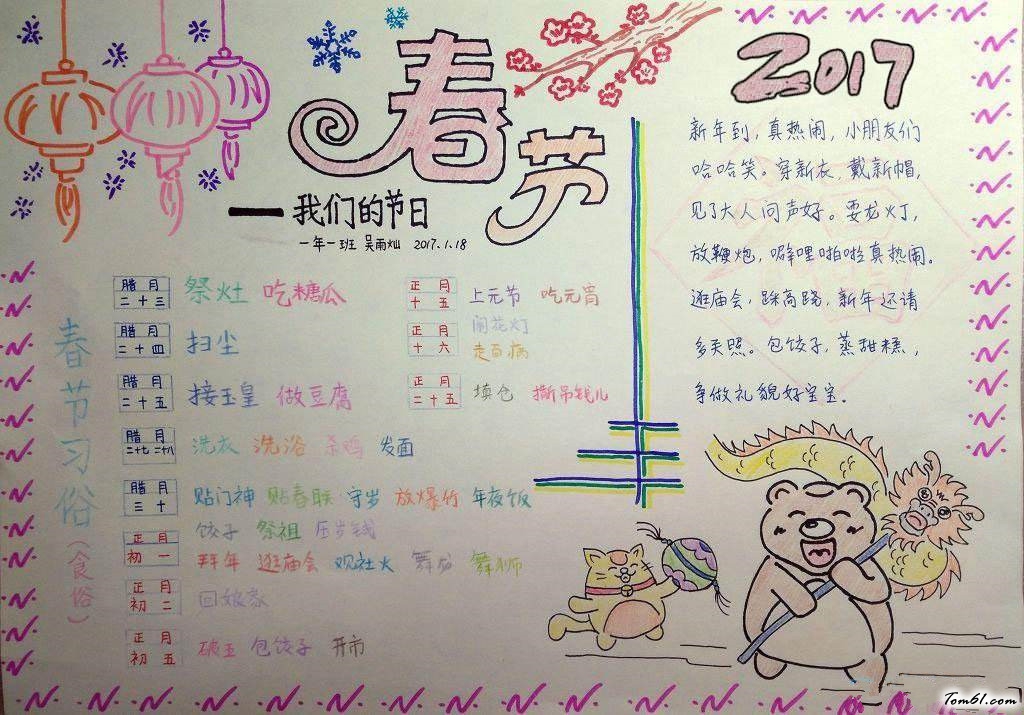 春节
——我们的节日
一年一班 吴雨灿 2017.1.18
2017
新年到,真热闹,小朋友们
哈哈笑。穿新衣,戴新帽,
见了大人问声好。耍龙灯,
放鞭炮,噼哩啪啦真热闹。
逛庙会,踩高跷,新年还请
多关照。包饺子,蒸甜糕,
争做礼貌好宝宝。
春节习俗(食俗)
腊月二十三 祭灶 吃糖瓜
腊月二十四 扫尘
腊月二十五 接玉皇 做豆腐
腊月二十七 二十八 洗衣 洗浴 杀鸡 发面
腊月三十 贴门神 贴春联 守岁 放爆竹 年夜饭
饺子 祭祖 压岁钱
正月初一 拜年 逛庙会 观社火 舞龙 舞狮
正月初二 回娘家
正月初五 破五 包饺子 开市
正月十五 上元节 吃元宵
闹花灯
正月十六 走百病
正月二十五 填仓 撕吊钱儿
Tom61.com